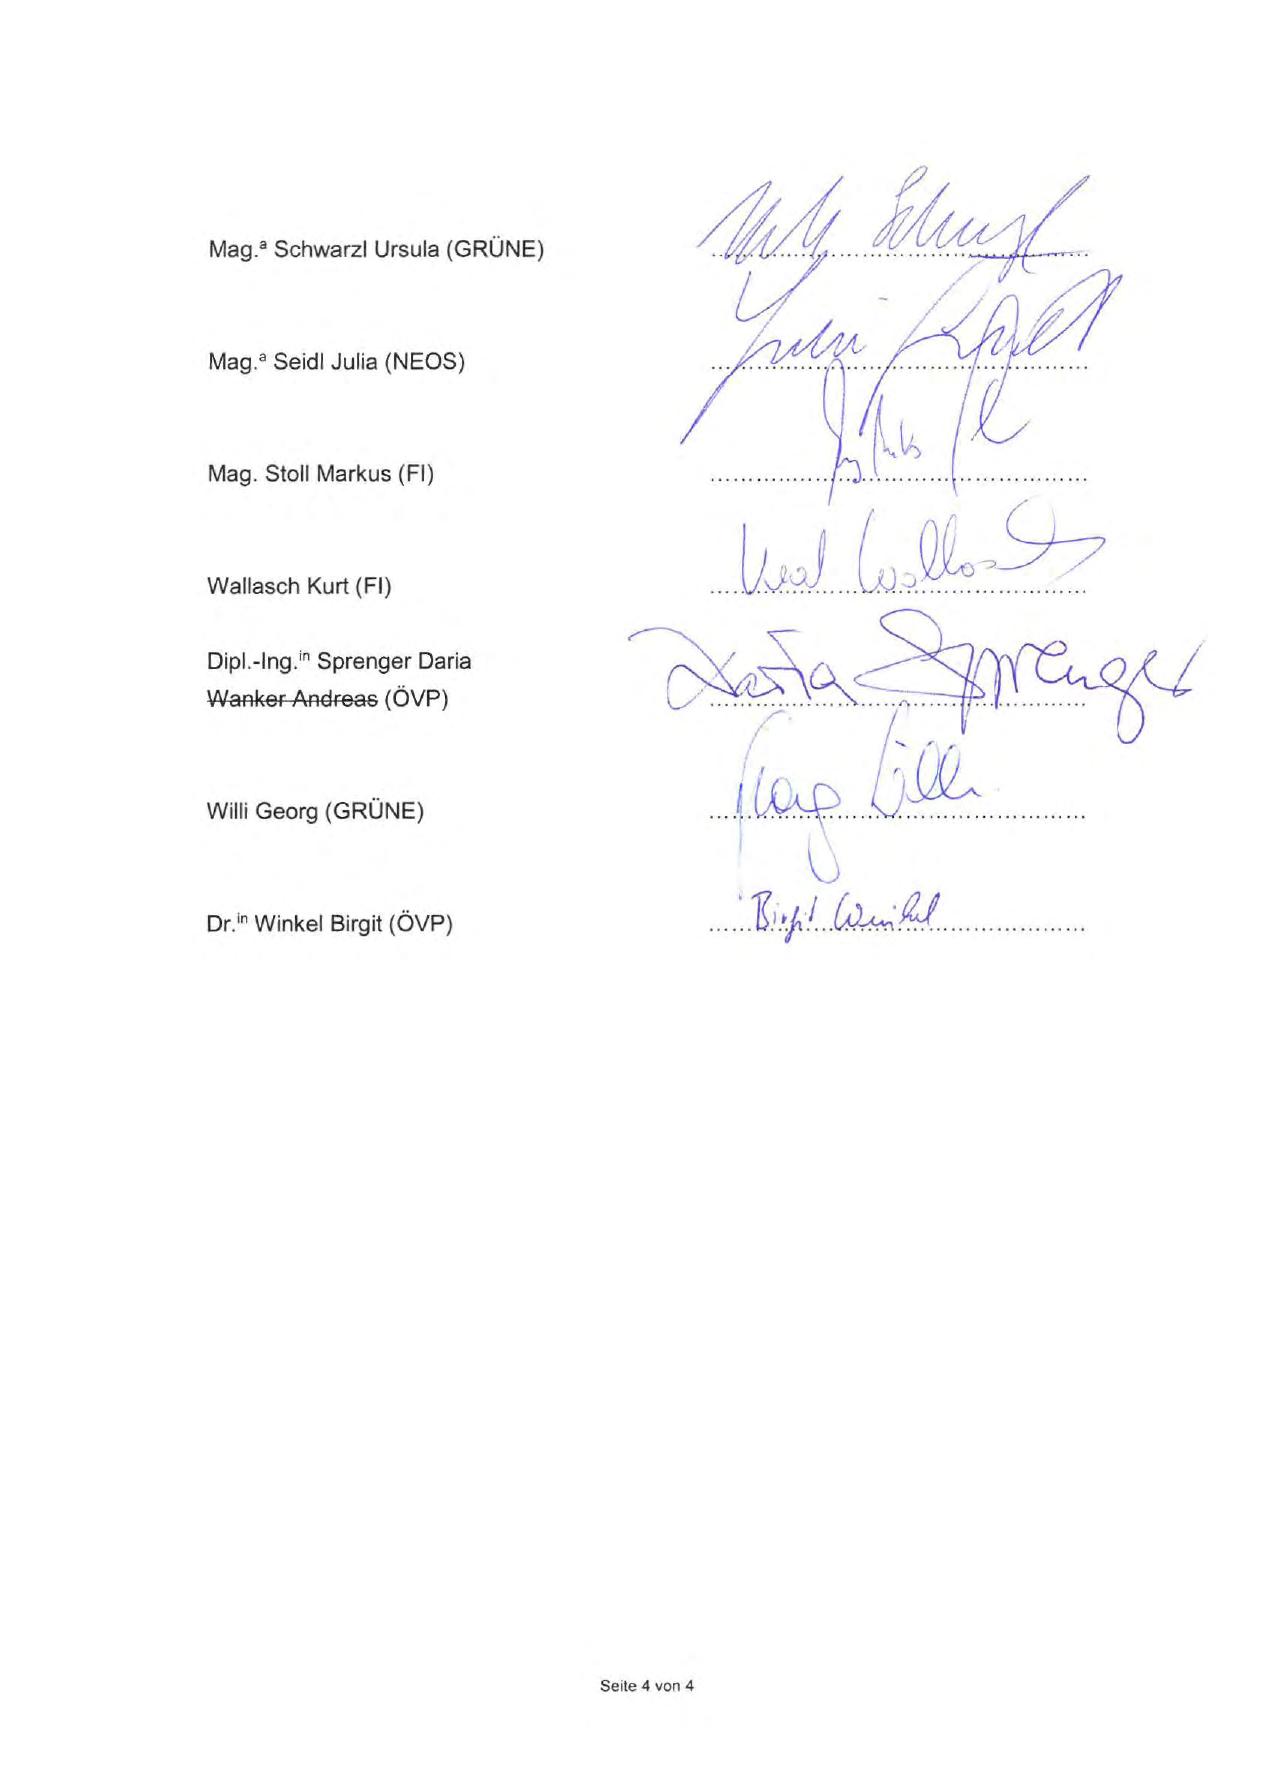 Mag.ª Schwarzl Ursula (GRÜNE)
Mag.ª Seidl Julia (NEOS)
Julia
Mag. Stoll Markus (FI)
Wallasch Kurt (FI)
Kurt Wallasch
Dipl.-Ing.ⁱⁿ Sprenger Daria
Wanker Andreas (ÖVP)
Daria Sprenger
Willi Georg (GRÜNE)
Georg Willi
Dr.ⁱⁿ Winkel Birgit (ÖVP)
Birgit Winkel
Seite 4 von 4